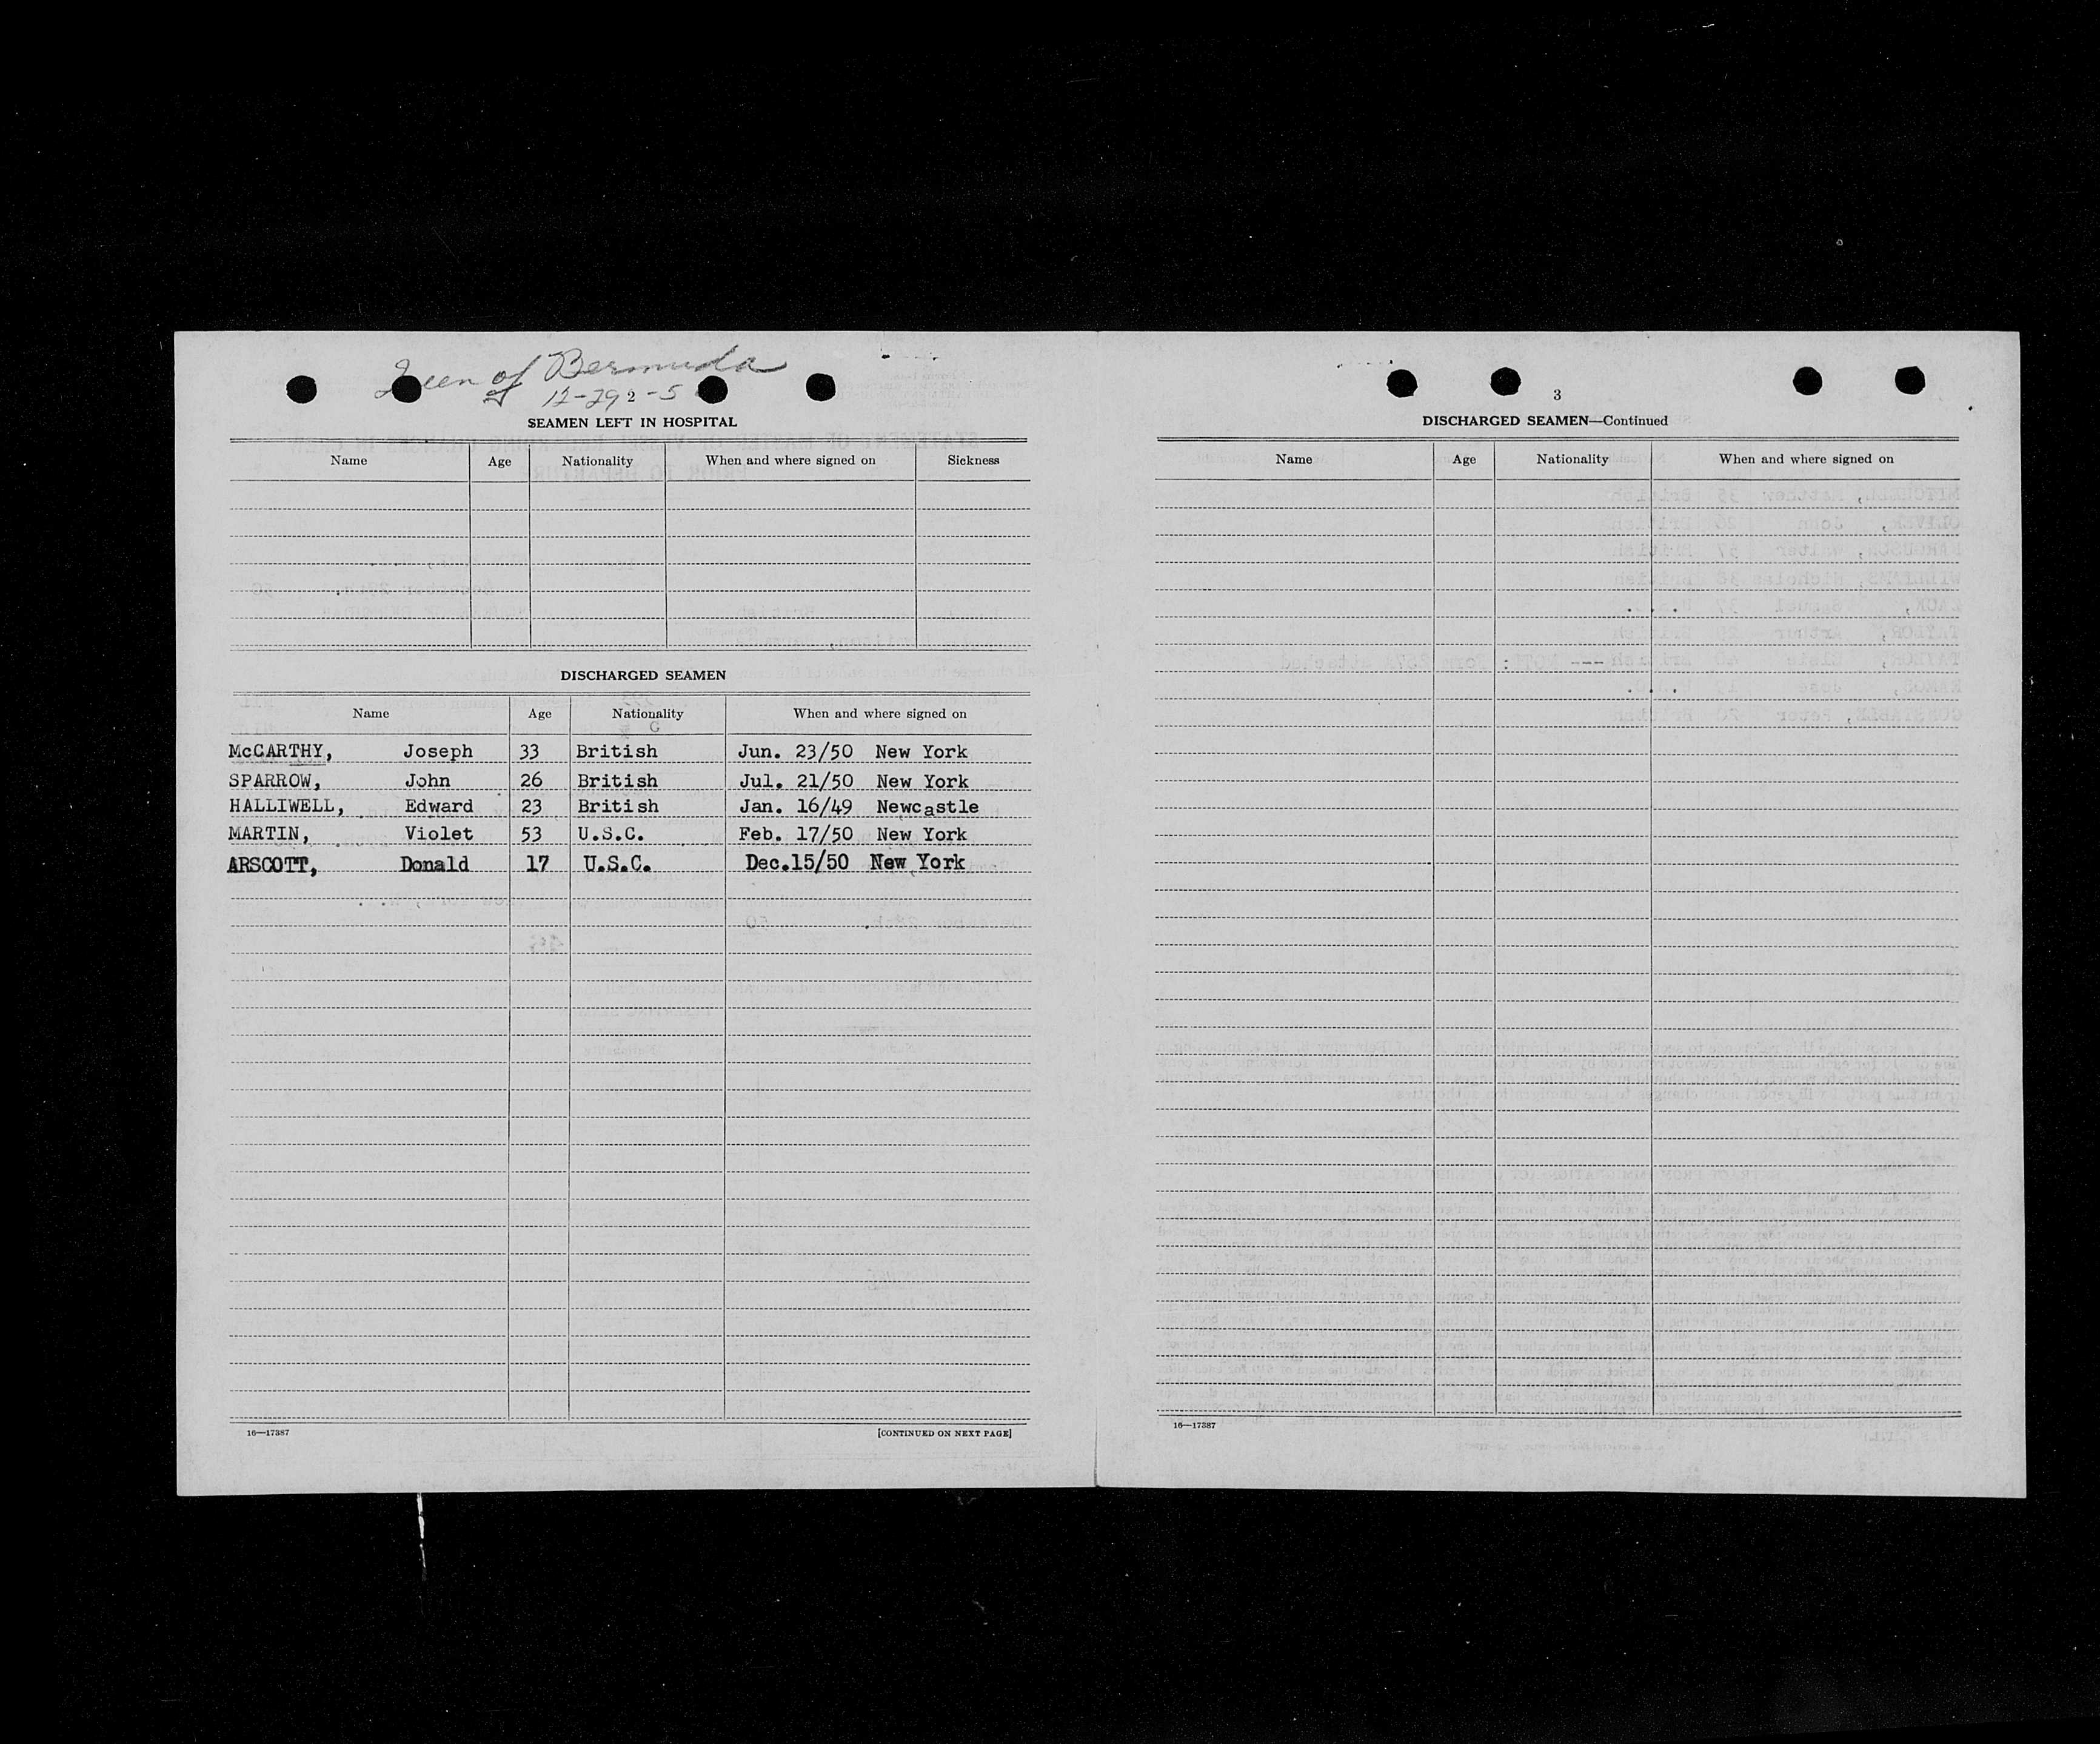 Queen of Bermuda
12-29 -5
2
SEAMEN LEFT IN HOSPITAL
Name Age Nationality When and where signed on Sickness
DISCHARGED SEAMEN
Name Age Nationality When and where signed on
McCARTHY, Joseph 33 British Jun. 23/50 New York
SPARROW, John 26 British Jul. 21/50 New York
HALLIWELL, Edward 23 British Jan. 16/49 Newcastle
MARTIN, Violet 53 U.S.C. Feb. 17/50 New York
ARSCOTT, Donald 17 U.S.C. Dec.15/50 New York
16—17387 [CONTINUED ON NEXT PAGE]
3
DISCHARGED SEAMEN—Continued
Name Age Nationality When and where signed on
16—17387